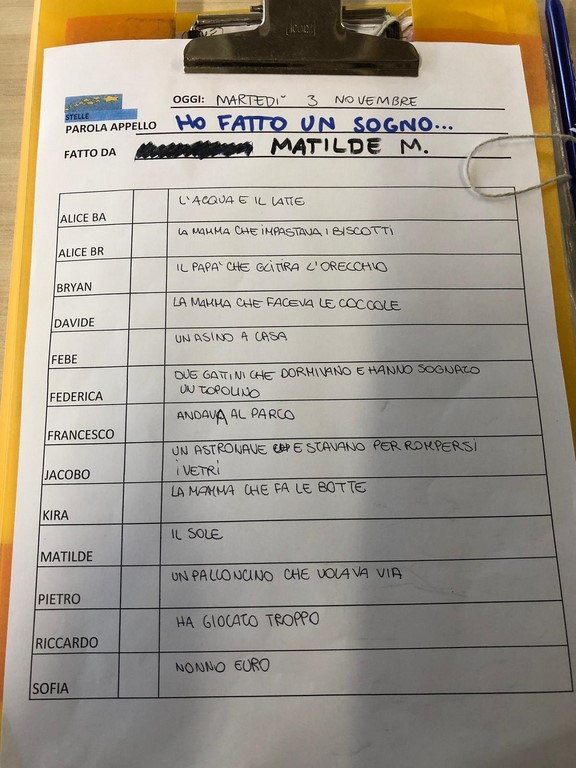 OGGI: MARTEDI' 3 NOVEMBRE
STELLE
PAROLA APPELLO HO FATTO UN SOGNO...
FATTO DA MATILDE M.
ALICE BA L'ACQUA E IL LATTE
ALICE BR LA MAMMA CHE IMPASTAVA I BISCOTTI
BRYAN IL PAPA' CHE GLI TIRA L'ORECCHIO
DAVIDE LA MAMMA CHE FACEVA LE COCCOLE
FEBE UN ASINO A CASA
FEDERICA DUE GATTINI CHE DORMIVANO E HANNO SOGNATO
UN TOPOLINO
FRANCESCO ANDAVA AL PARCO
JACOBO UN ASTRONAVE E STAVANO PER ROMPERSI
I VETRI
KIRA LA MAMMA CHE FA LE BOTTE
MATILDE IL SOLE
PIETRO UN PALLONCINO CHE VOLAVA VIA
RICCARDO HA GIOCATO TROPPO
SOFIA NONNO EURO